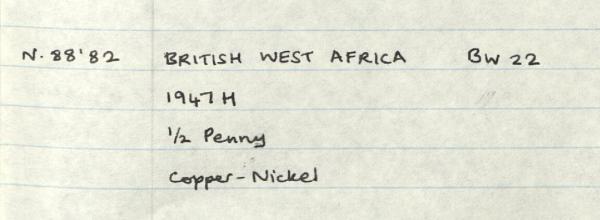 N. 88'82 BRITISH WEST AFRICA BW 22
1947 H
1/2 Penny
Copper-Nickel